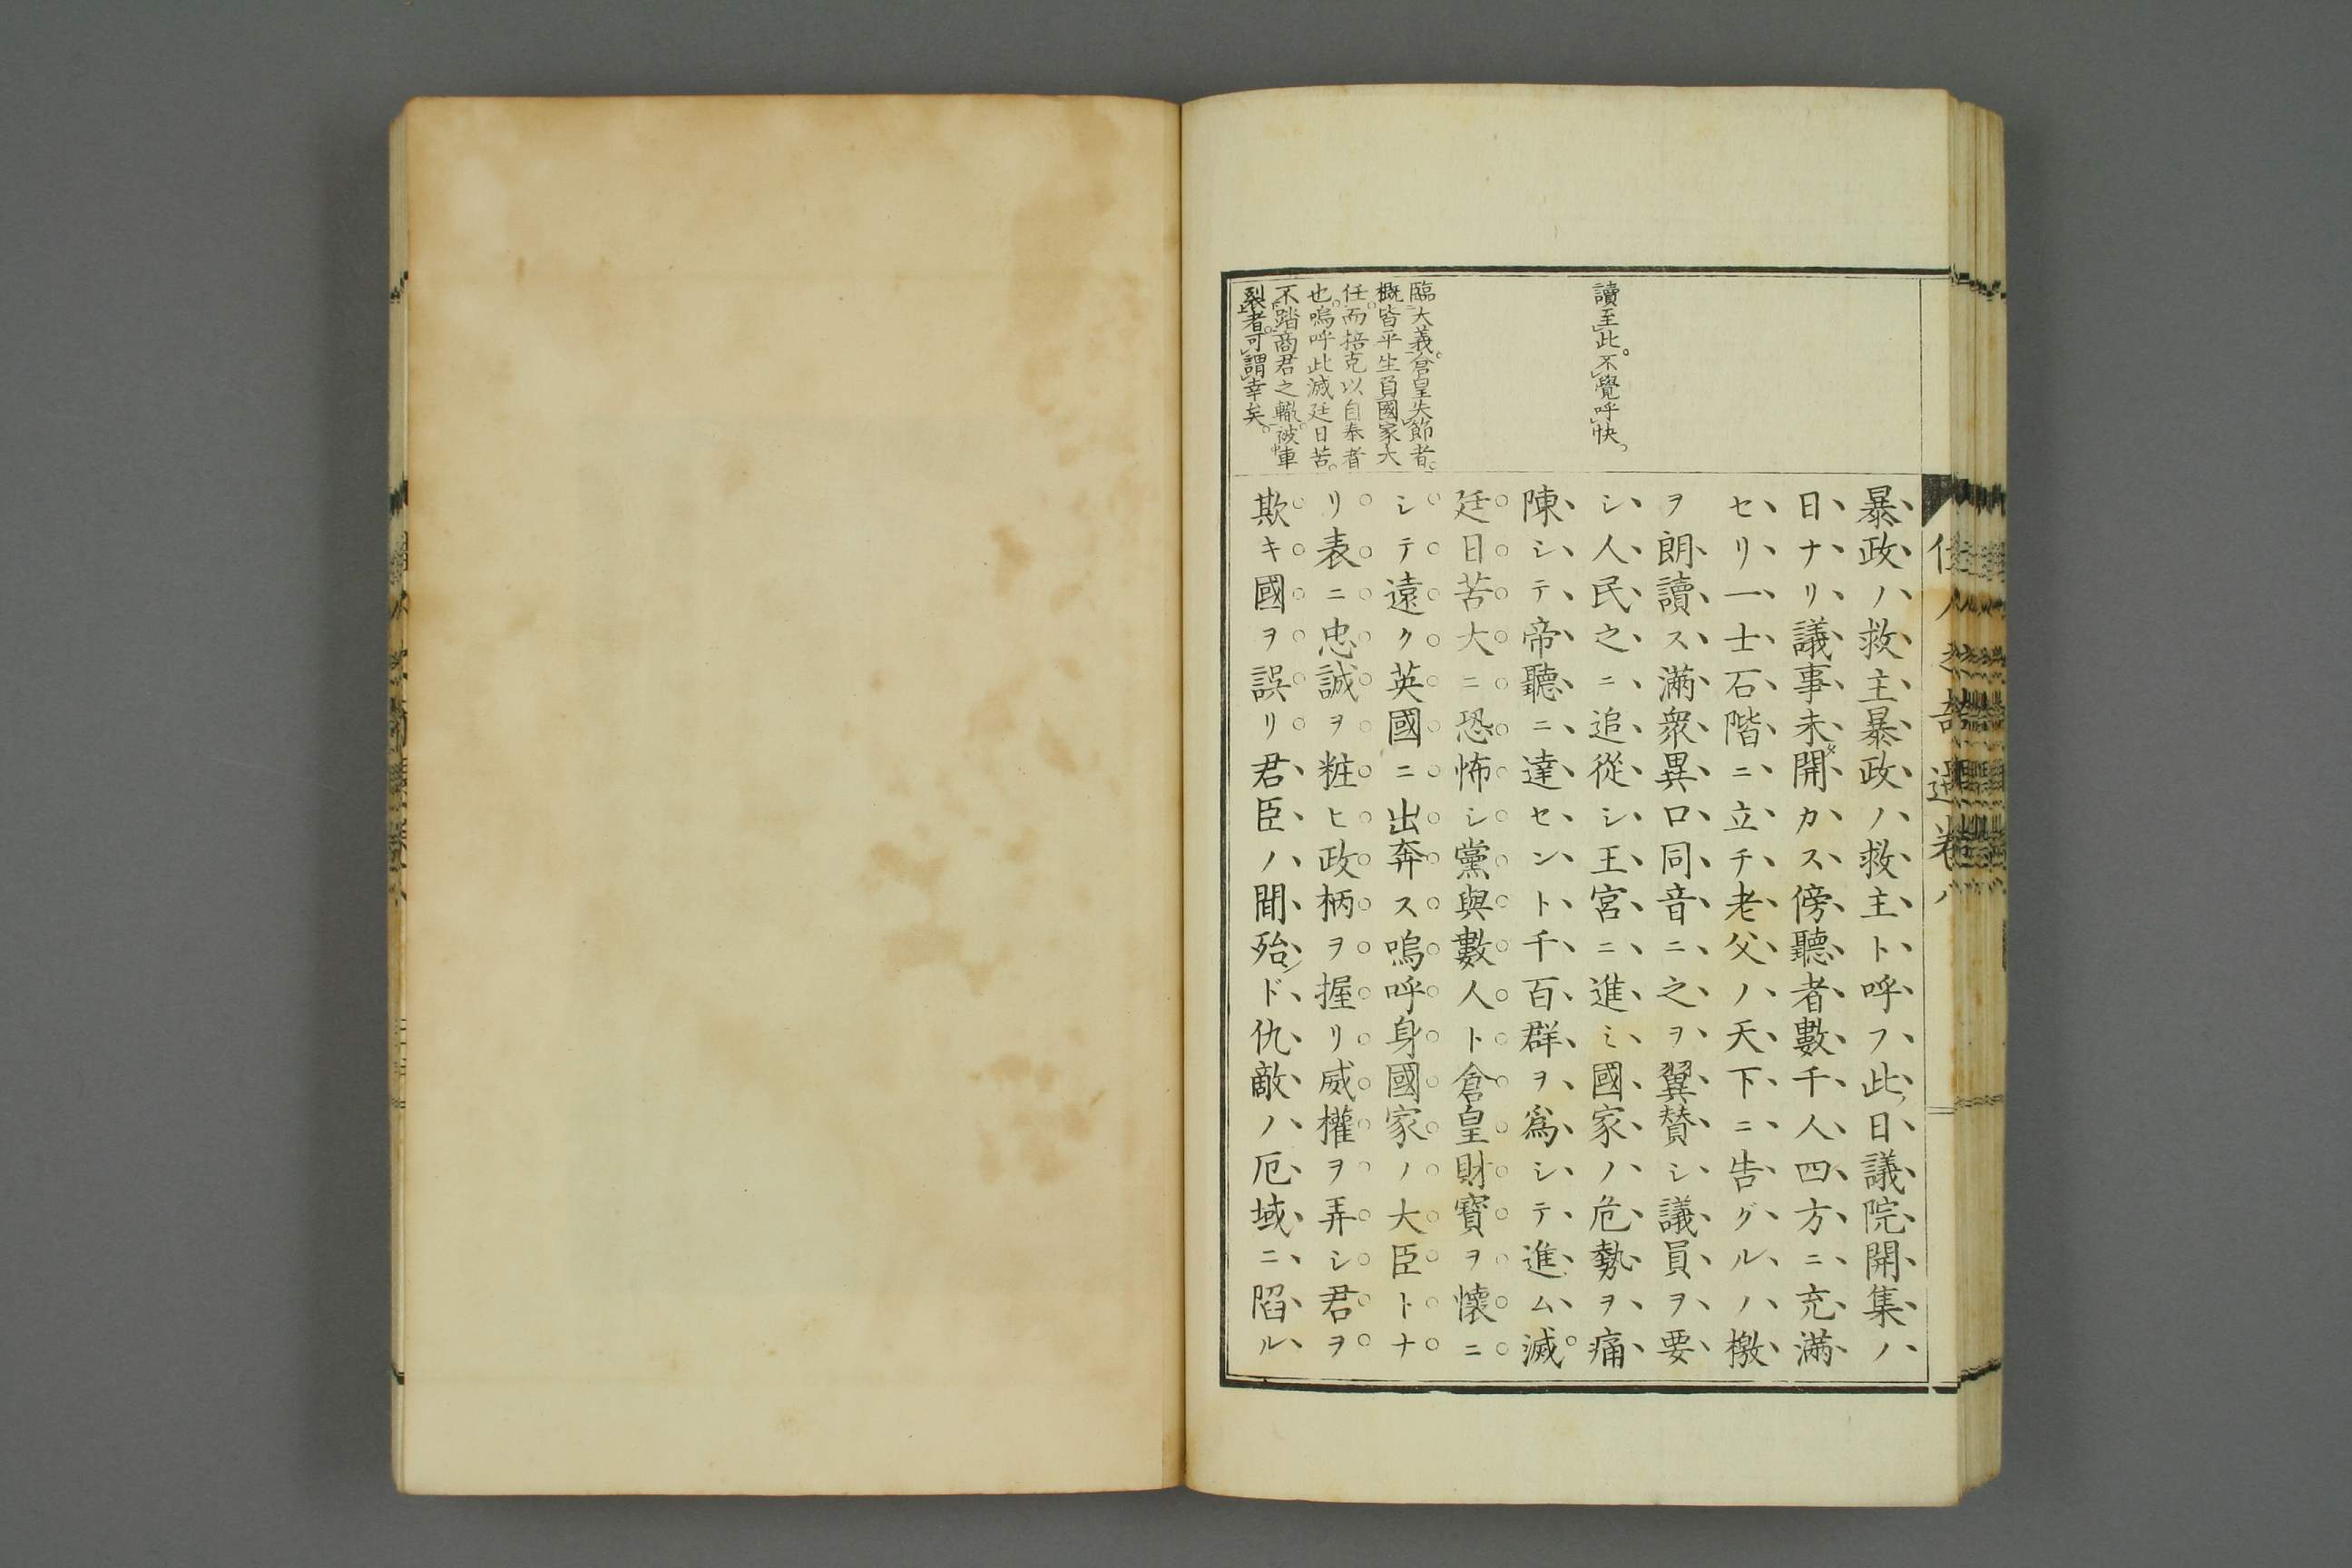 暴政ノ救主暴政ノ救主ト呼フ此ノ日議院開集ノ
日ナリ議事未タ開カス傍聽者數千人四方ニ充滿
セリ一士石階ニ立チ老父ノ天下ニ告グルノ檄
ヲ朗讀ス滿衆異口同音ニ之ヲ翼賛シ議員ヲ要
シ人民之ニ追從シ王宮ニ進ミ國家ノ危勢ヲ痛
陳シテ帝聽ニ達セント千百群ヲ爲シテ進ム滅
廷日苦大ニ恐怖シ黨與數人ト倉皇財寶ヲ懷ニ
シテ遠ク英國ニ出奔ス嗚呼身國家ノ大臣トナ
リ表ニ忠誠ヲ粧ヒ政柄ヲ握リ威權ヲ弄シ君ヲ
欺キ國ヲ誤リ君臣ノ間殆ンド仇敵ノ厄域ニ陷ル
讀至此。不覺呼快。
臨大義。倉皇失節者。
概皆平生負國家大
任。而掊克以自奉者
也。嗚呼此滅廷日苦。
不踏商君之轍。被車
裂者。可謂幸矣。